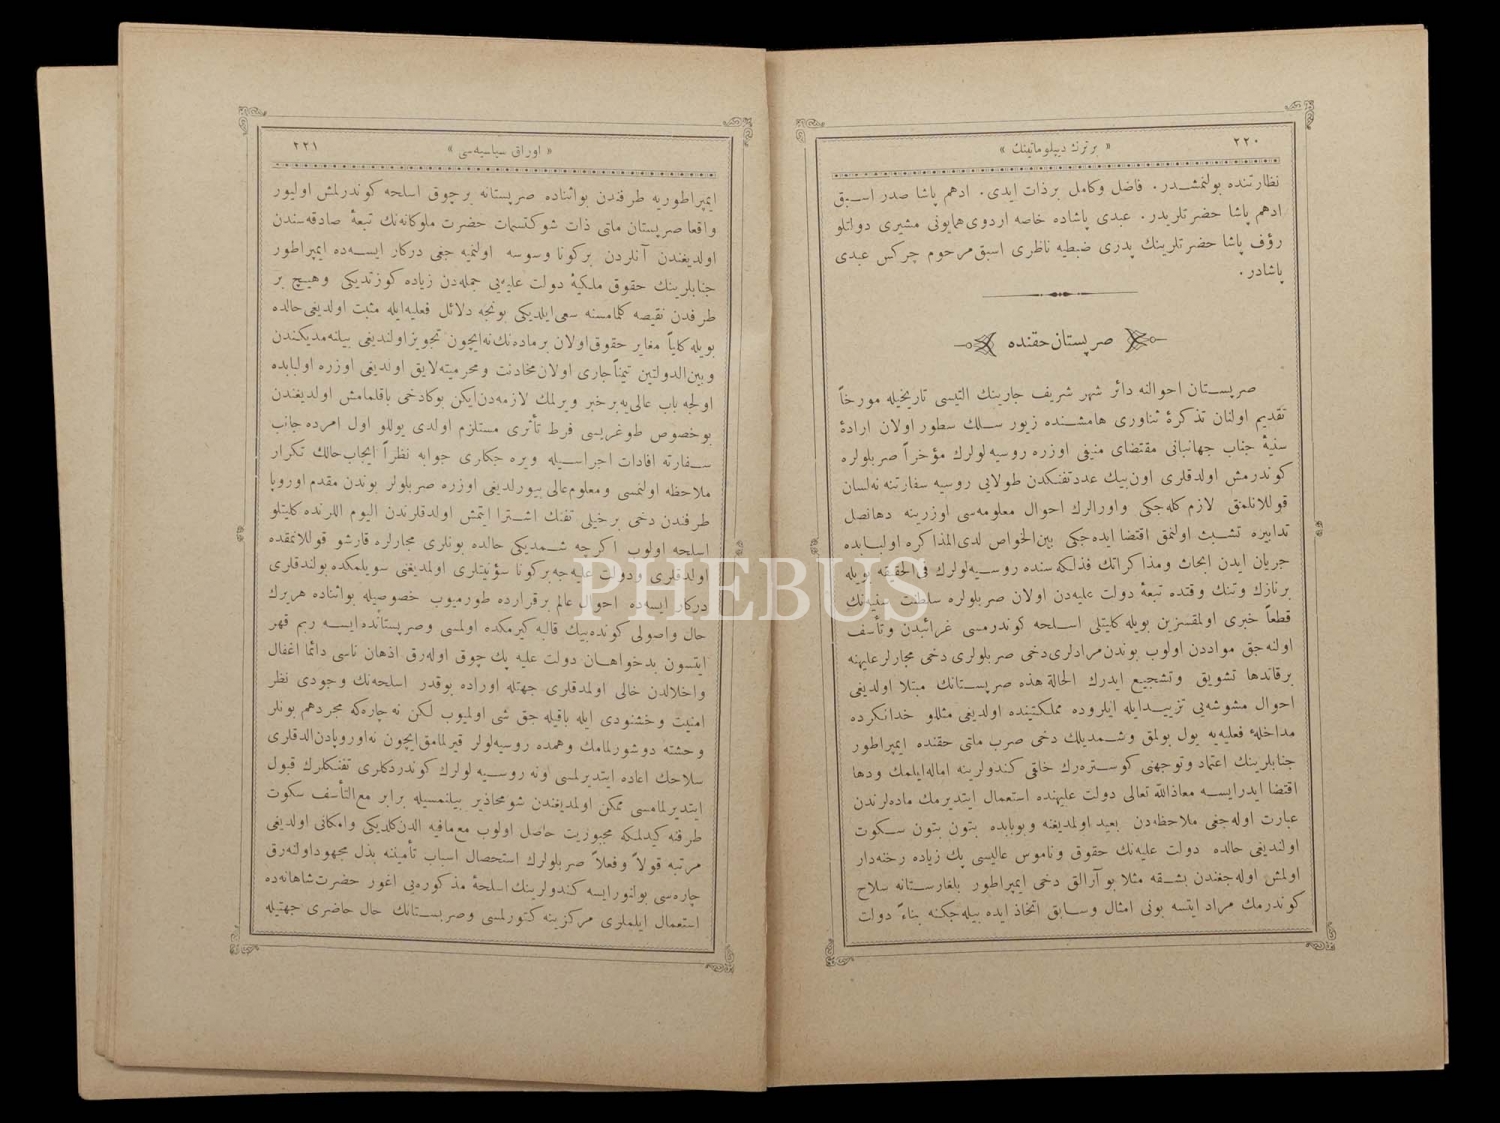 ٢٢٠
« بر ترك ديپلوماتينك »
نظارتنده بولنمشدر. فاضل وكامل بر ذات ايدى. ادهم پاشا صدر اسبق
ادهم پاشا حضرتلريدر. عبدى پاشاده خاصه اردوى همايونى مشيرى دولتلو
رؤف پاشا حضرتلرينك پدرى ضبطيه ناظرى اسبق مرحوم چركس عبدى
پاشادر.
صربستان حقنده
صربستان احوالنه دائر شهر شريف جارينك التيسى تاريخيله مورخاً
تقديم اولنان تذكرهٔ ثناورى هامشنده زيور سلك سطور اولان ارادهٔ
سنيهٔ جناب جهانبانى مقتضاى منيفى اوزره روسيه لولرك مؤخراً صربلولره
كوندرمش اولدقلرى اون بيك عدد تفنكدن طولايى روسيه سفارتنه نه لسان
قوللانلمق لازم كله جكى واورالرك احوال معلومه سى اوزرينه دها نصل
تدابيره تشبث اولنمق اقتضا ايده جكى بين الخواص لدى المذاكره اولبابده
جريان ايدن ابحاث ومذاكراتك فذلكه سنده روسيه لولرك فى الحقيقه بويله
بر نازك وتنك وقتده تبعهٔ دولت عليه دن اولان صربلولره سلطنت سنيه نك
قطعاً خبرى اولمقسزين بويله كليتلى اسلحه كوندرمسى غرائبدن وتأسف
اولنه جق موادن اولوب بوندن مرادلرى دخى صربلولرى دخى مجارلر عليهنه
بر قاندها تشويق وتشجيع ايدرك الحالة هذه صربستانك مبتلا اولديغى
احوال مشوشه يى تزييد ايله ايلروده مملكتينده اولديغى مثللو خدانكرده
مداخلهٔ فعليه يه يول بولمق وشمديلك دخى صرب ملتى حقنده ايمپراطور
جنابلرينك اعتماد وتوجهنى كوستره رك خلقى كندولرينه اماله ايلمك ودها
اقتضا ايدر ايسه معاذالله تعالى دولت عليهنده استعمال ايتديرمك ماده لرندن
عبارت اوله جغى ملاحظه دن بعيد اولمديغنه وبوبابده بتون بتون سكوت
اولنديغى حالده دولت عليه نك حقوق وناموس عاليسى پك زياده رخنه دار
اولمش اوله جغندن بشقه مثلا بو آرالق دخى ايمپراطور بلغارستانه سلاح
كوندرمك مراد ايتسه بونى امثال وسابق اتخاذ ايده بيله جكنه بناءً دولت
« اوراق سياسيه سى »
٢٢١
ايمپراطوريه طرفندن بواثناده صربستانه بر چوق اسلحه كوندرلمش اوليور
واقعا صربستان ملتى ذات شوكتسمات حضرت ملوكانه نك تبعهٔ صادقه سندن
اولديغندن آنلردن بر كونا وسوسه اولنميه جغى دركار ايسه ده ايمپراطور
جنابلرينك حقوق ملكيهٔ دولت عليه يى جمله دن زياده كوزتديكى وهيچ بر
طرفدن نقيصه كلمامسنه سعى ايلديكى بونجه دلائل فعليه ايله مثبت اولديغى حالده
بويله كلياً مغاير حقوق اولان بر ماده نك نه ايچون تجويز اولنديغى بيلنه مديكندن
وبين الدولتين تيمناً جارى اولان مخادنت ومحرميته لايق اولديغى اوزره اولبابده
اولجه باب عالى يه بر خبر ويرلمك لازمه دن ايكن بوكا دخى باقلمامش اولديغندن
بوخصوص طوغريسى فرط تأثرى مستلزم اولدى يوللو اول امرده جانب
سفارته افادات اجراسيله ويره جكلرى جوابه نظراً ايجاب حالك تكرار
ملاحظه اولنمسى ومعلوم عالى بيورلديغى اوزره صربلولر بوندن مقدم اوروپا
طرفندن دخى بر خيلى تفنك اشترا ايتمش اولدقلرندن اليوم اللرنده كليتلو
اسلحه اولوب اكرچه شمديكى حالده بونلرى مجارلره قارشو قوللانمقده
اولدقلرى ودولت عليه جه بر كونا سؤنيتلرى اولمديغنى سويلمكده بولندقلرى
دركار ايسه ده احوال عالم بر قرارده طورميوب خصوصيله بواثناده هر يرك
حال واصولى كونده بيك قالبه كيرمكده اولمسى وصربستانده ايسه ربم قهر
ايتسون بدخواهان دولت عليه پك چوق اوله رق اذهان ناسى دائما اغفال
واخلالدن خالى اولمدقلرى جهتله اوراده بوقدر اسلحه نك وجودى نظر
امنيت وخشنودى ايله باقيله جق شى اولميوب لكن نه چاره كه مجردهم بونلر
وحشته دوشورلمامك وهمده روسيه لولر قيرلمامق ايچون نه اوروپادن الدقلرى
سلاحك اعاده ايتديرلمسى ونه روسيه لولرك كوندردكلرى تفنكلرك قبول
ايتديرلمامسى ممكن اولمديغندن شو محاذير بيلنمسيله برابر مع التأسف سكوت
طرفنه كيدلمكه مجبوريت حاصل اولوب مع مافيه الدن كلديكى وامكانى اولديغى
مرتبه قولاً وفعلاً صربلولرك استحصال اسباب تأميننه بذل مجهود اولنه رق
چاره سى بولنور ايسه كندولرينك اسلحهٔ مذكوره يى اغور حضرت شاهانه ده
استعمال ايلملرى مركزينه كتورلمسى وصربستانك حال حاضرى جهتيله
PHEBUS